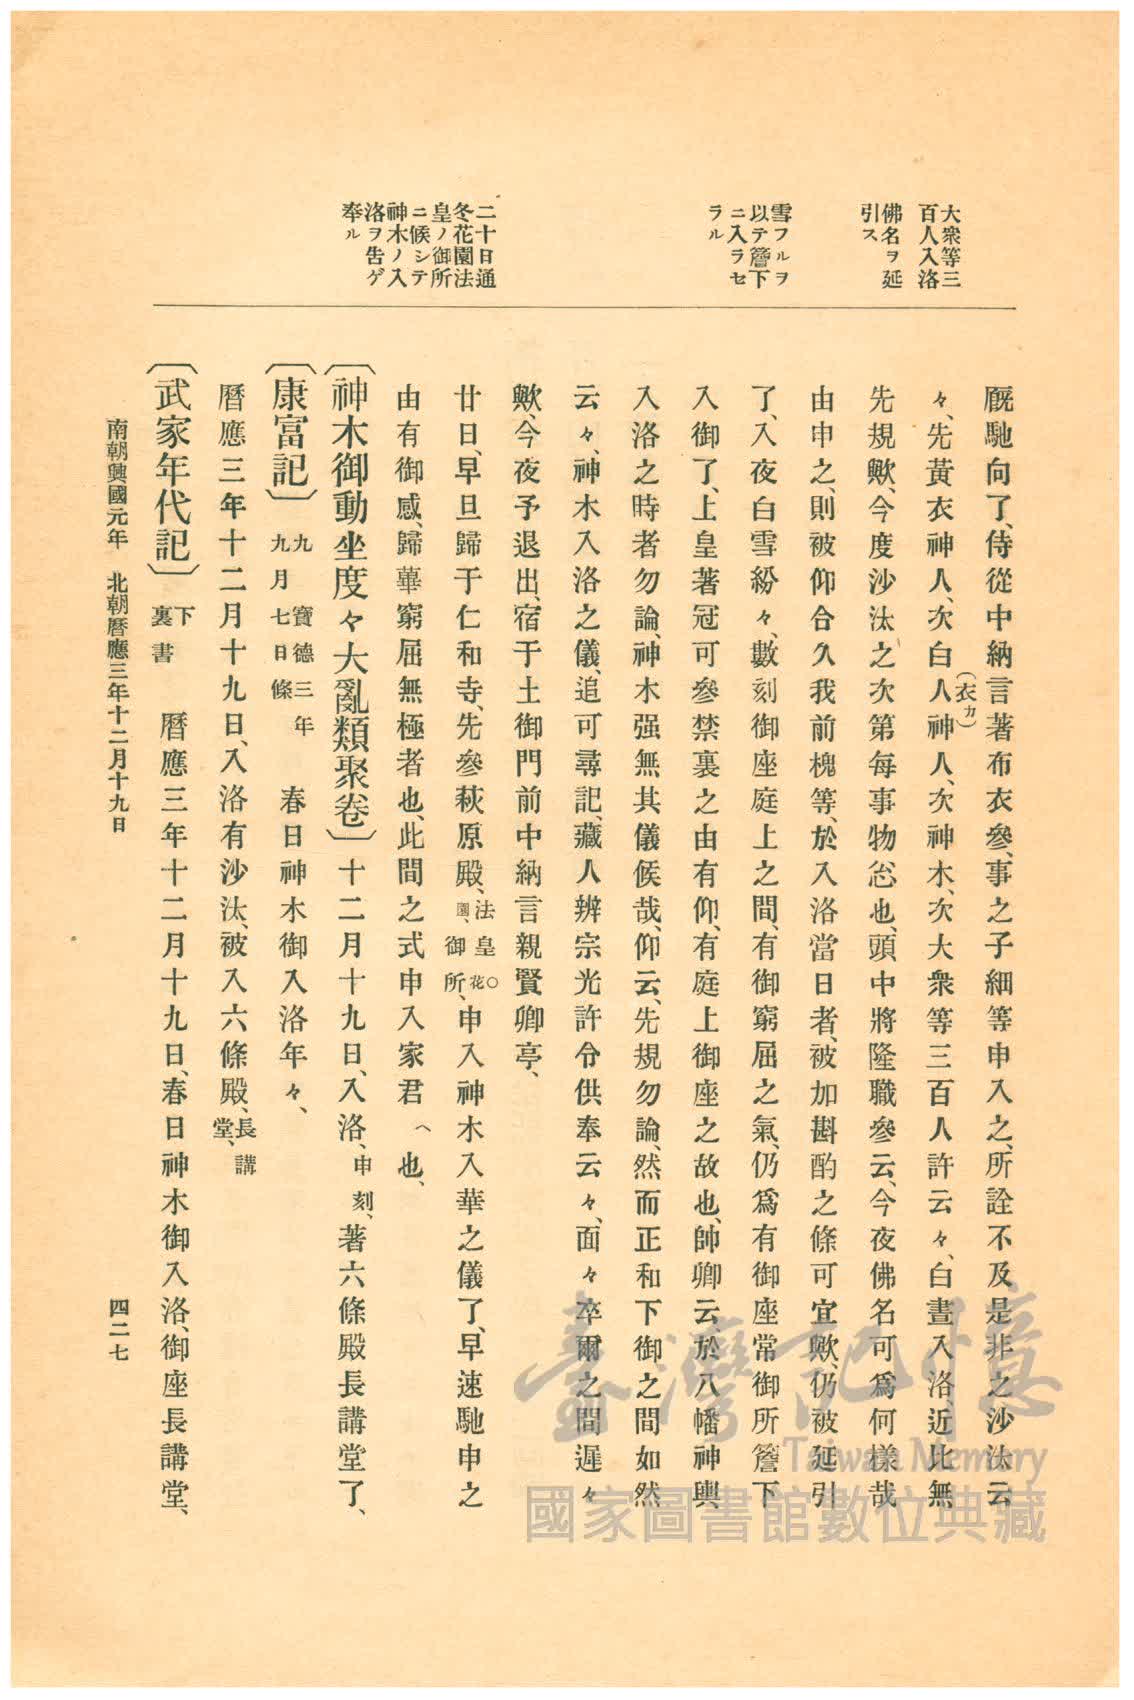 大衆等三
百人入洛
佛名ヲ延
引ス
雪フルヲ
以テ簷下
ニ入ラセ
ラル
二十日通
冬花園法
皇ノ御所
ニ候シテ
神木ノ入
洛ヲ告ゲ
奉ル
厩馳向了、侍從中納言著布衣參、事之子細等申入之、所詮不及是非之沙汰云
々、先黃衣神人、次白人(衣カ)神人、次神木、次大衆等三百人許云々、白晝入洛、近比無
先規歟、今度沙汰之次第每事物忩也、頭中將隆職參云、今夜佛名可爲何樣哉
由申之、則被仰合久我前槐等、於入洛當日者、被加斟酌之條可宜歟、仍被延引
了、入夜白雪紛々、數刻御座庭上之間、有御窮屈之氣、仍爲有御座常御所簷下
入御了、上皇著冠可參禁裏之由有仰、有庭上御座之故也、帥卿云、於八幡神輿
入洛之時者勿論、神木强無其儀候哉、仰云、先規勿論、然而正和下御之間如然
云々、神木入洛之儀、追可尋記、藏人辨宗光許令供奉云々、面々卒爾之間遲々
歟、今夜予退出、宿于土御門前中納言親賢卿亭、
廿日、早旦歸于仁和寺、先參萩原殿、法皇○花園、御所、申入神木入華之儀了、早速馳申之
由有御感、歸華窮屈無極者也、此間之式申入家君へ也、
〔神木御動坐度々大亂類聚卷〕十二月十九日、入洛、申刻、著六條殿長講堂了、
〔康富記〕九寶德三年九月七日條 春日神木御入洛年々、
曆應三年十二月十九日、入洛有沙汰、被入六條殿、長講堂、
〔武家年代記〕下裏書 曆應三年十二月十九日、春日神木御入洛、御座長講堂、
南朝興國元年 北朝曆應三年十二月十九日
四二七
臺灣記憶
Taiwan Memory
國家圖書館數位典藏